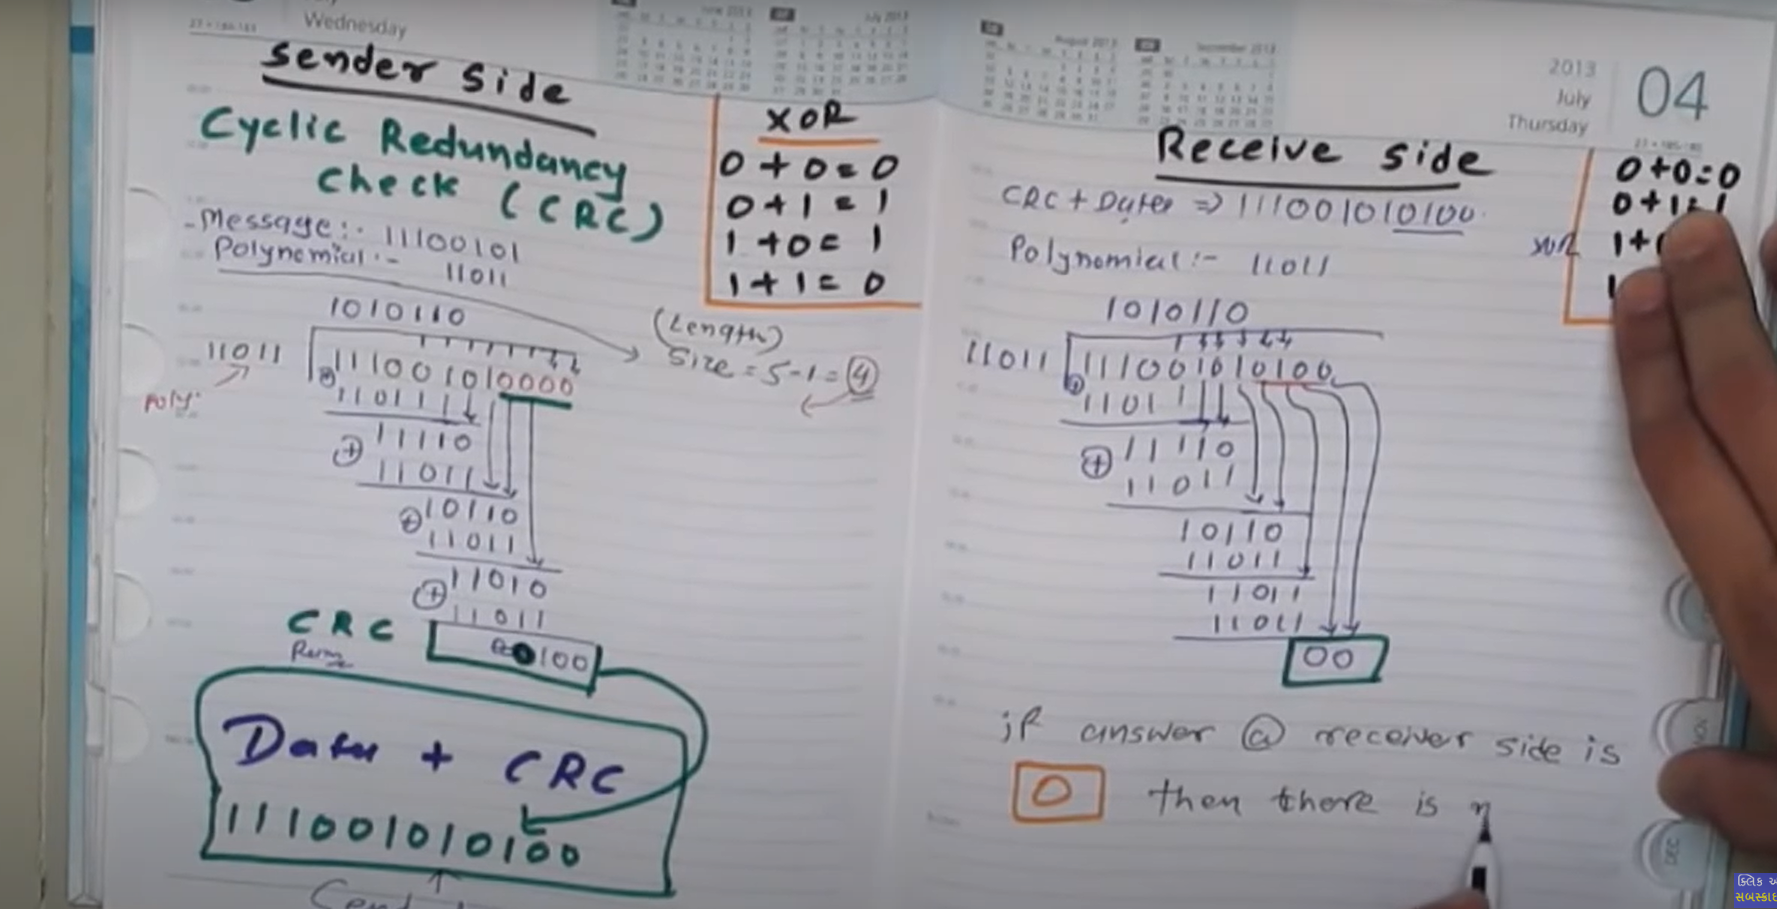 Wednesday
Sender Side
Cyclic Redundancy
Check (CRC)
Message:- 11100101
Polynomial:- 11011
XOR
0 + 0 = 0
0 + 1 = 1
1 + 0 = 1
1 + 1 = 0
1010110
11011
111001010000
11011
11110
11011
10110
11011
11010
11011
100
Poly.
(Length)
Size = 5-1 = 4
CRC
Data + CRC
111001010100
2013
July
Thursday
04
Receive side
CRC + Data => 111001010100
Polynomial :- 11011
0+0=0
0+1=1
XOR
1+
1
1010110
11011
111001010100
11011
11110
11011
10110
11011
11011
11011
00
if answer @ receiver side is
0 then there is n
DEC
ક્લિક અ
સબસ્ક્રાઇ